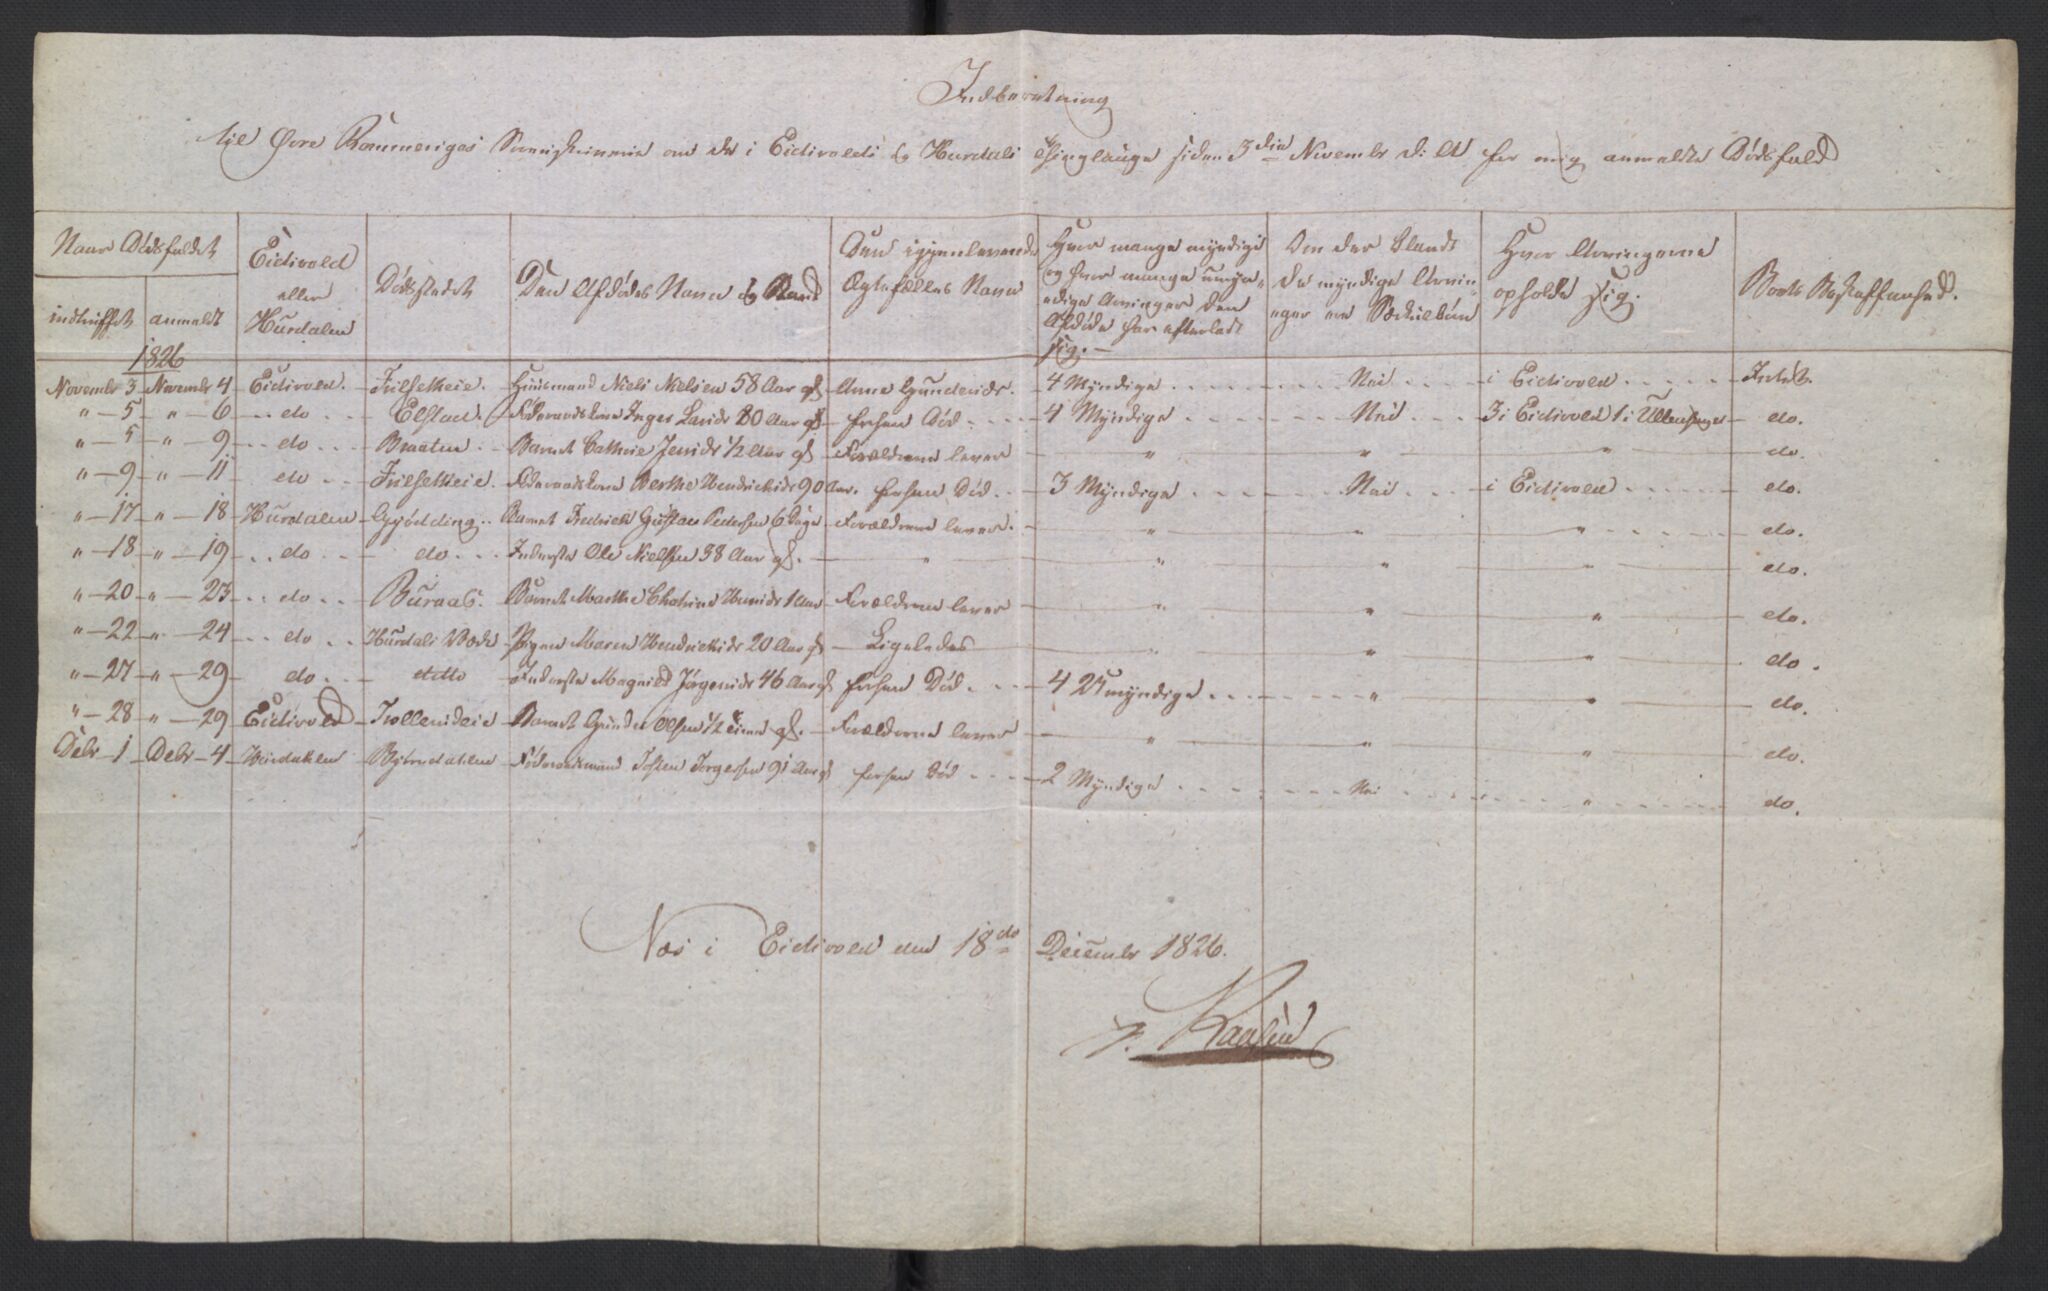 Indberetning
til Øvre Rommeriges Sorenskriverie om de i Eidsvolds og Hurdals Thinglauge siden 3die November d: A: for mig anmeldte Dødsfald
Naar Dødsfaldet | Eidsvold eller Hurdalen | Dødsstedet | Den Afdødes Navn og Stand | Den igjenlevende Ægtefælles Navn | Hvor mange myndige og hvor mange umyndige Arvinger den Afdøde har efterladt sig.— | Om der blandt de myndige Arvinger ere Særkulbørn | Hvor Arvingerne opholde sig. | Boets Beskaffenhed.
indtruffet | anmeldt
1826
November 3 | November 4 | Eidsvold. | Friseheie. | Huusmand Niels Nielsen 58 Aar gl. | Anne Gundersdr. | 4 Myndige | Nei | i Eidsvold | Intet.
" — 5 | " — 6 | do | Elstad. | Føderaadskone Inger Larsdr 80 Aar gl | forhen Død. | 4 Myndige | Nei | 3 i Eidsvold 1 i Ullensager | do.
" — 5 | " — 9 | do | Braaten | Barnet Cathrie Jensdr 1/2 Aar gl | Forældrene lever | " | " | " | do.
" — 9 | " — 11 | do | Friseheie. | Føderaadskone Berthe Hendrichsdr 90 Aar. | forhen Død. | 3 Myndige | Nei | i Eidsvold | do.
" — 17 | " — 18 | Hurdalen | Gjødding | Barnet Fredrich Gustav Pedersen 6 Dage | Forældrene lever. | " | " | " | do.
" — 18 | " — 19 | do | do | Inderste Ole Nielsen 38 Aar gl. | " | " | " | " | do.
" — 20 | " — 23 | do | Buraas. | Barnet Marthe Chatrine Hansdr 1 Aar | Forældrene lever | " | " | " | do.
" — 22 | " — 24 | do | Hurdals Værk | Pigen Maren Hendrichsdr 20 Aar gl | Ligeledes | " | " | " | do.
" — 27 | " — 29 | do | ditto | Inderste Magnild Jørgensdr 46 Aar gl | forhen Død. | 4 Umyndige | " | " | do.
" — 28 | " — 29 | Eidsvold | Trollerudeie | Barnet Gunder Olsen 1/2 Time gl. | Forældrene lever | " | " | " | do.
Debr 1 | Debr 4 | Hurdalen | Bjørndahlen | Føderaadsmand Josten Torgersen 91 Aar gl | forhen Død | 2 Myndige | Nei | " | do.
Næs i Eidsvold den 18de December 1826.
Kaasen